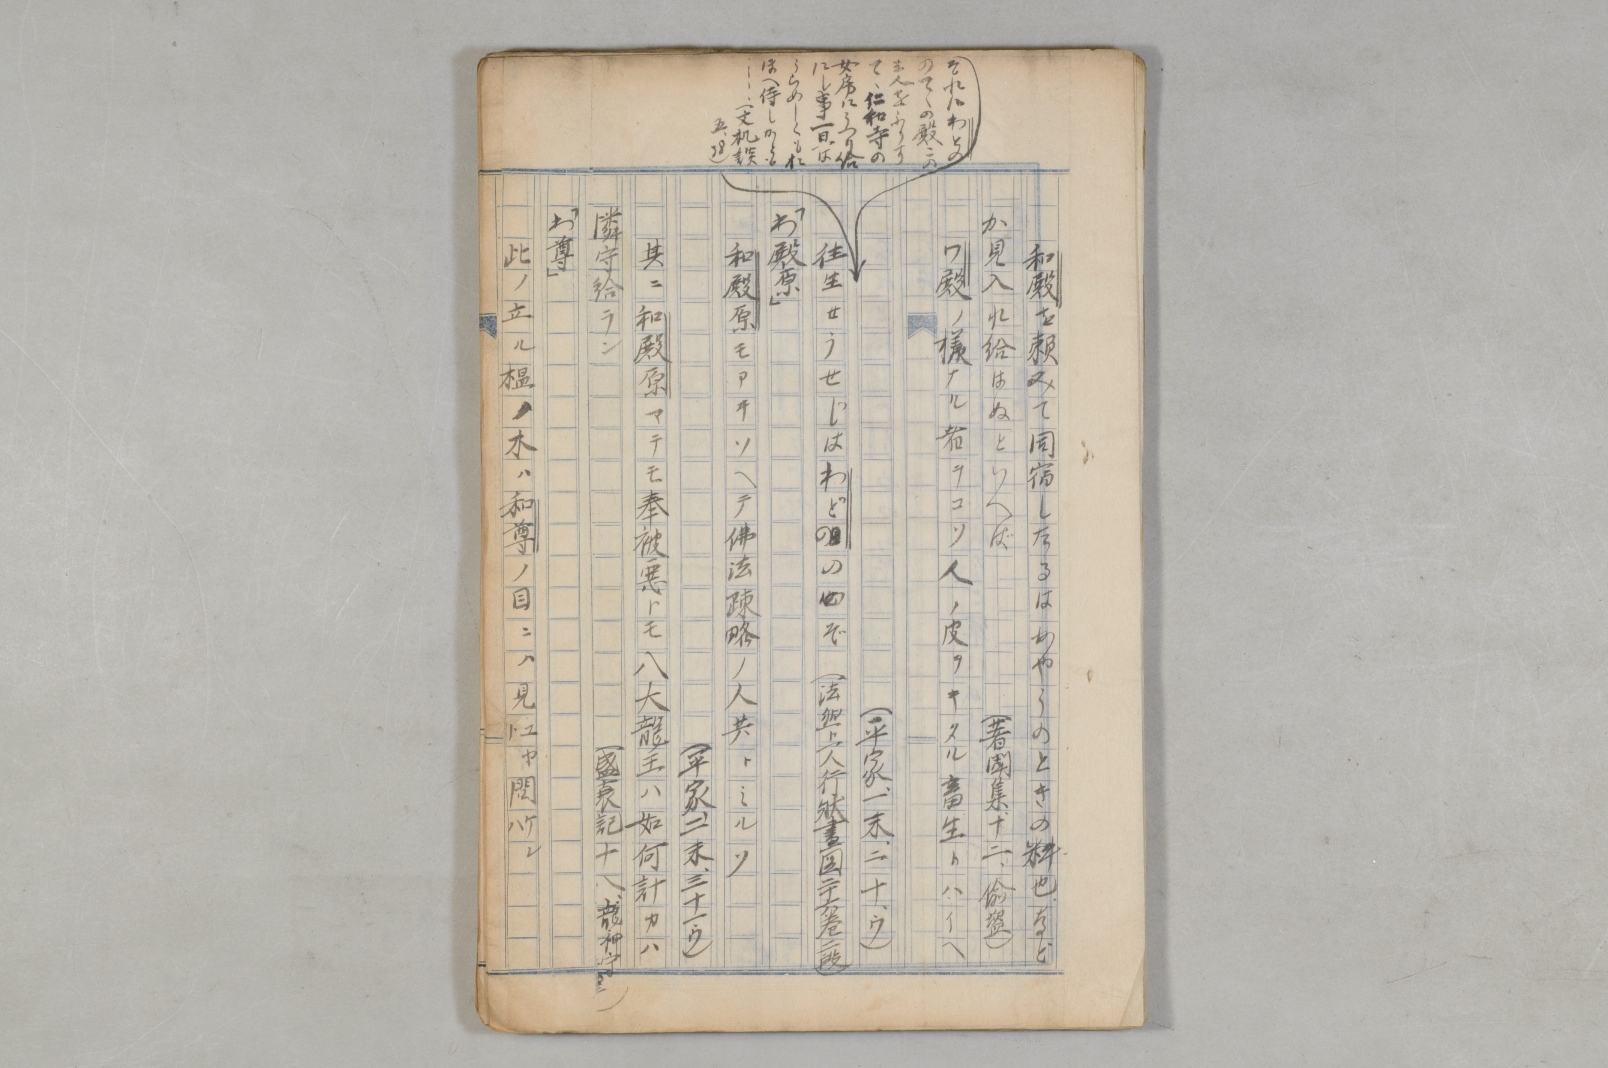 それにわとの
のてゝの殿この
て、仁和寺の
にし事一日は
うらめしくもお
（文机談
和殿を頼みて同宿したるはかやうのときの料也など
か見入れ給はぬといへば
（著聞集、十二、偸盗）
ワ殿ノ様ナル者ヲコソ人ノ皮ヲキタル畜生トハイヘ
（平家一末、二十、ウ）
往生せうせじはわどのの心ぞ（法然上人行状畫図二十六巻二段）
「わ殿原」
和殿原モアヰソヘテ佛法疎略ノ人共トミルソ
（平家二末、三十一ウ）
其ニ和殿原マテモ奉被悪トモ八大龍王ハ如何計カハ
隣守給ラン
（盛衰記十八、龍神守
「わ尊」
此ノ立ル榲ノ木ハ和尊ノ目ニハ見ユヤト問ハケレ